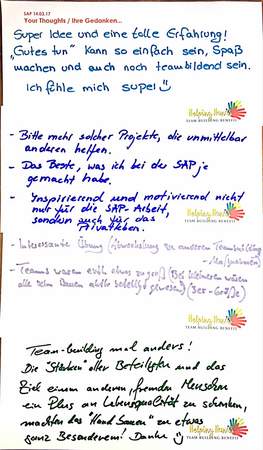 SAP 14.03.17
Your Thoughts / Ihre Gedanken...
Super Idee und eine tolle Erfahrung!
„Gutes tun" kann so einfach sein, Spaß
machen und auch noch teambildend sein.
Ich fühle mich super
Helping Hands
TEAM BUILDING BENEFIT
- Bitte mehr solcher Projekte, die unmittelbar
anderen helfen.
- Das Beste, was ich bei der SAP je
gemacht habe.
- Inspirierend und motivierend nicht
nur für die SAP-Arbeit,
sondern auch für das
Privatleben.
- Interessante Übung (Abwechslung zu anderen Teambuilding
-Maßnahmen)
- Teams waren evtl. etwas zu groß (Bei kleineren wären
alle beim Bauen aktiv beteiligt gewesen) (3er-Größe)
Helping Hands
TEAM BUILDING BENEFIT
Team-building mal anders!
Die "Stärken" aller Beteiligten und das
Ziel einem anderen, fremden Menschen
ein Plus an Lebensqualität zu schenken,
machten das "Hand Bauen" zu etwas
ganz Besonderem! Danke
Helping Hands
TEAM BUILDING BENEFIT